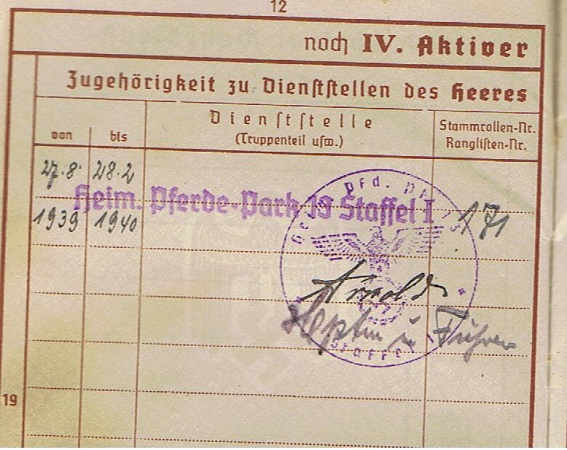 12
noch IV. Aktiver
Zugehörigkeit zu Dienststellen des Heeres
von
bis
Dienststelle
(Truppenteil usw.)
Stammrollen-Nr.
Ranglisten-Nr.
27.8. 28.2
Heim. Pferde-Park 13 Staffel I
171
1939 1940
Arnold
Hptm u Führer
19